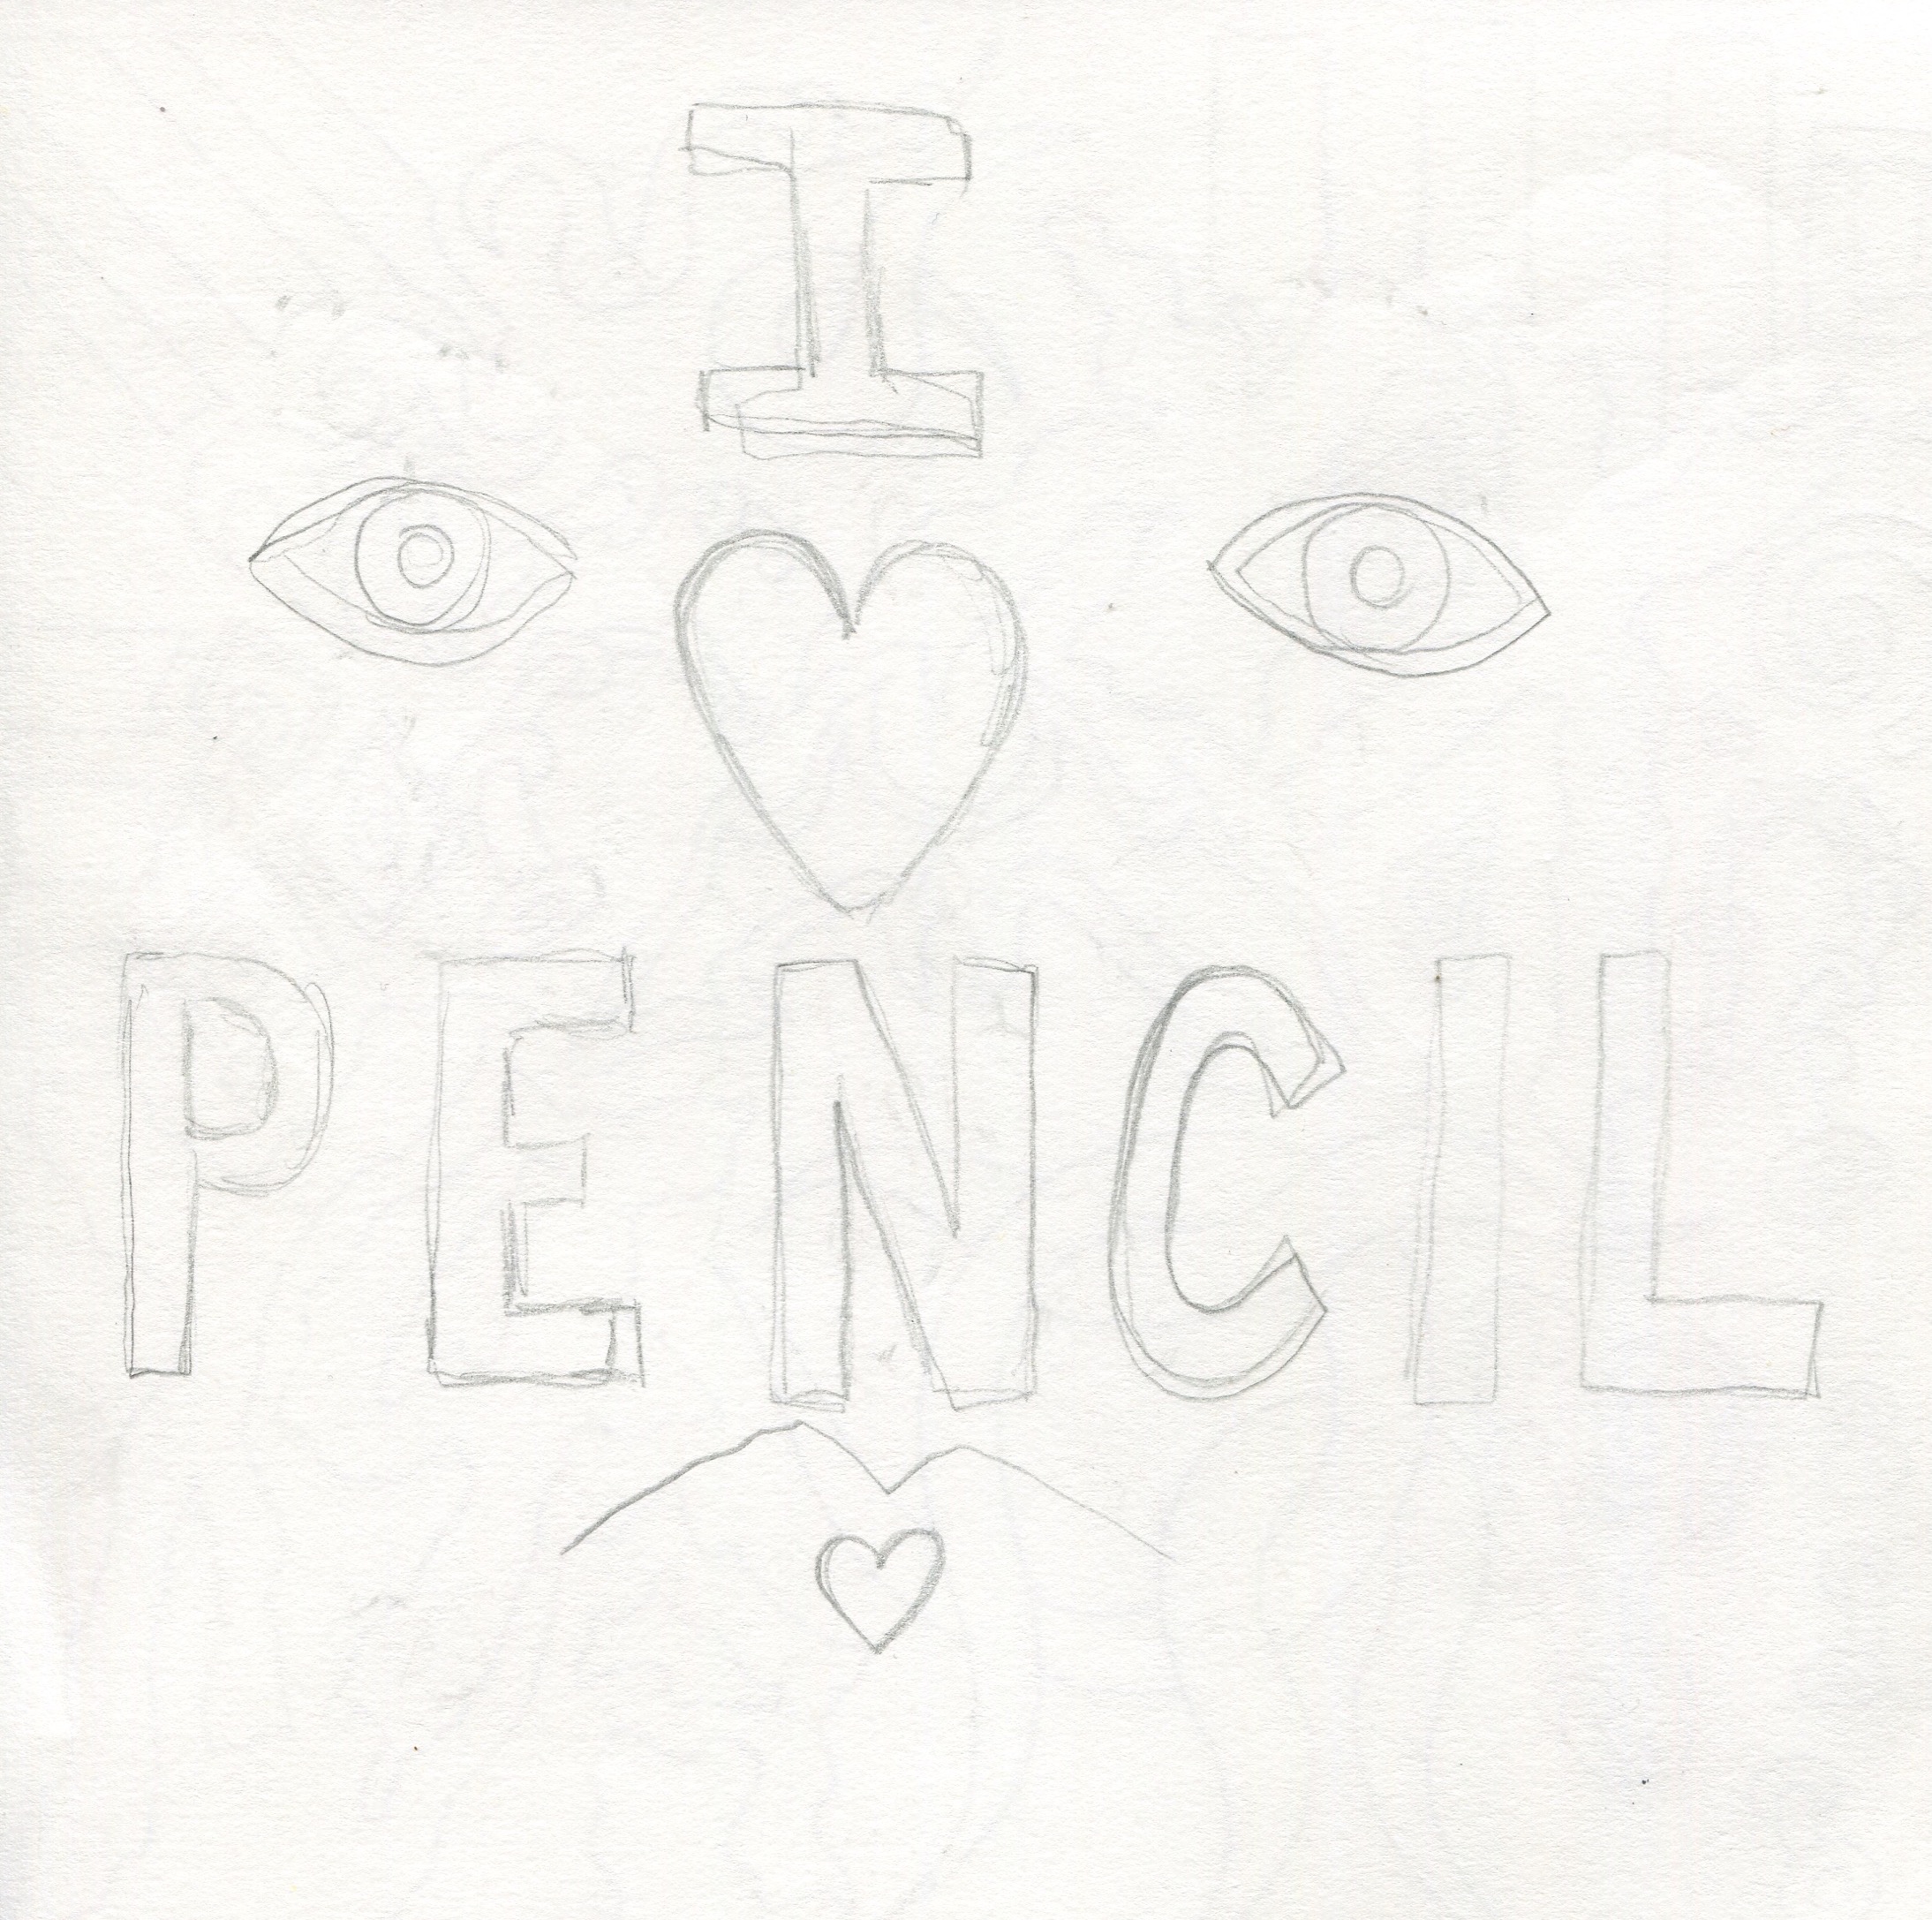 I
♥
PENCIL